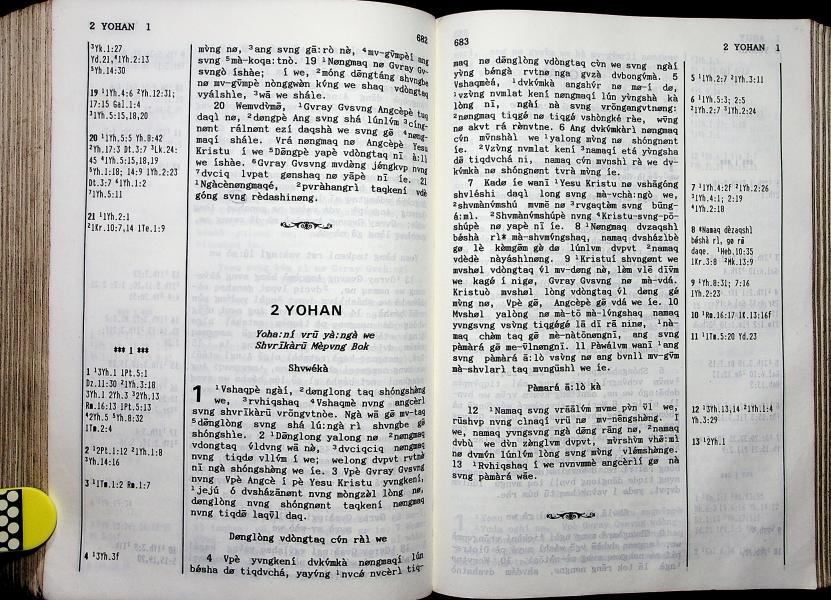 2 YOHAN 1
682
³Yk.1:27
Yd.21,⁴1Yh.2:13
⁵Yh.14:30
19 ¹1Yh.4:6 ²Yh.12:31;
17:15 Gal.1:4
³1Yh.5:15,18,20
20 ¹1Yh.5:5 Yh.8:42
²Yh.17:3 Dt.3:7 ³Lk.24:
45 ⁴1Yh.5:15,18,19
⁵Yh.1:18; 14:9 1Yh.2:23
Dt.3:7 ⁶1Yh.1:2
⁷1Yh.5:11
21 ¹1Yh.2:1
²1Kr.10:7,14 1Te.1:9
*** 1 ***
1 ¹3Yh.1 1Pt.5:1
Dz.11:30 ²1Yh.3:18
3Yh.1 2Yh.3 ³2Yh.13
Rm.16:13 1Pt.5:13
⁴2Yh.5 ⁵Yh.8:32
1Tm.2:4
2 ¹2Pt.1:12 ²1Yh.1:8
³Yh.14:16
3 ¹1Tm.1:2 Rm.1:7
4 ¹3Yh.3f
mv̀ng nø, ³ang svng gā:rò nè, ⁴mv-gv̄mpèí ang
svng ⁵mà-koqa:tnò. 19 ¹Nø̀ngmaq nø Gvray Gv-
svngò íshàe; í we, ²móng dḕngtáng shvngbe
nø mv-gv̄mpè nònggwèn kv́ng we shaq vdòngtaq
vyálshìe, ³wā we shále.
20 Wemvdv̄mē, ¹Gvray Gvsvng Angcèpè tuq
daqì nø, ²dø̀ngpè Ang svng shá lúnlv́m ³cíng-
nønt rálnønt ezí daqshà we svng gē ⁴nø̀ng-
maqí shále. Vrá nø̀ngmaq nø Angcèpè Yesu
Kristu í we ⁵Dḕngpè yapè vdòngtaq nī à:lì
we íshàe. ⁶Gvray Gvsvng mvdàng jéngkvp nvng
⁷dvciq lvpat gønshaq nø yāpè nī íe. 21
¹Ngàcènø̀ngmaqé, ²pvràhangrì taqkení vdè
góng svng rèdashìnøng.
2 YOHAN
Yoha:ní vrū yà:ngà we
Shvrīkàrū Mèpvng Bok
Shvwékà
1 ¹Vshaqpè ngàí, ²dø̀nglòng taq shóngshàng
we, ³rvhìqshaq ⁴Vshaqmè nvng angcèrì
svng shvrīkàrū vrōngvtnòe. Ngà wā gē mv-taq
⁵dḕnglòng svng shá lú:ngà rì shvngbe gē
shóngshìe. 2 ¹Dḕnglòng yalòng nø ²nø̀ngmaq
vdòngtaq v́ldvng wā nè, ³dvciqciq nø̀ngmaq
nvng tiqdø vllv́m í we; welòng dvpvt rvtnø
nī ngà shóngshàng we íe. 3 Vpè Gvray Gvsvng
nvng Vpè Angcè í pè Yesu Kristu yvngkení,
¹jejú ó dvsházānønt nvng mòngzàl lòng nø,
dø̀nglòng nvng shóngnønt taqkení nø̀ngmaq
nvng tiqdø laqv̄l daq.
Dø̀nglòng vdòngtaq cv́n ràl we
4 Vpè yvngkení dvkv́mkà nø̀ngmaqí lún
bø̀sha dø tiqdvchá, yayv́ng ¹nvcé nvcèrì tiq-
683
2 YOHAN 1
maq nø dø̀nglòng vdòngtaq cv̀n we svng ngàí
yv̀ng bǿngà rvtnø nga gvzà dvbøngv́mà. 5
Vshaqmèá, ¹dvkv́mkà angshv́r nø mø-í dø,
¹vzv́ng nvmlat kení nø̀ngmaqí lún yv̀ngshà kà
lòng nī, ngàí nà svng vrōngangvtnøng:
²nø̀ngmaq tiqgé nø tiqgé vshòngké ràe, wv̄ng
nø akvt rá rènvtne. 6 Ang dvkv́mkàrì nø̀ngmaq
cv́n mv̄nshal we ¹yalòng nø shóngnønt
íe. ²Vzv́ng nvmlat kení ³nø̀maqí etá yv́ngsha
dē tiqdvchá ni, namaq cv́n mvnshl rà we dv-
kv́mkà nø shóngnønt tvrà mv̀ng íe.
7 Kadø íe wanī ¹Yesu Kristu nø vshāgóng
shvléshì daqì long svng mà-vchà:ngò we,
²shvmànvmshú mvmē nø ³rvgaqtàm svng bùng-
á:mì. ²Shvmànvmshúpè nvng ⁴Kristu-svng-pō-
shúpè nø yapè nī íe. 8 ¹Nø̀ngmaq dvzaqshì
bǿshà rì* mà-shvmv́ngshaq, namaq dvsházìbè
gø lè kèmgèm gè dø lúnlvm dvpvt ²namaq
vdèdè nàyáshìnøng. 9 ¹Kristuí shvngønt we
mvshøl vdòngtaq v́l mv-dø̀ng nè, lèm vlē dīv̄m
we kagø í nígø, Gvray Gvsvng nø mà-vdá.
Kristuò mvshøl lòng vdòngtaq v́l dø̀ng gē
mv̀ng nø, Vpè gē, Angcèpè gē vdá we íe. 10
Mvshøl yalòng nø mà-tō mà-lv́ngshaq namaq
yvngsvng vsv̀ng tiqgégé lā dī rā ninø, ¹nà-
maq chø̀m taq gē mè-nàtōnøngní, ang svng
pàmárá gē me-v̄lnøngní. 11 Pàwálvm wanī ¹ang
svng pàmárá ā:lò vsv̀ng nø ang bvnlì mv-gv̄m
mà-shvlarì taq mvngūshì we íe.
Pàmárá ā:lò kà
12 ¹Namaq svng vrāālv́m mvme pv̀n v̄l we,
rūshvp nvng clnaqí vrū nø mv-rvgaq daqnòng. Í
we, namaq yvngsvng ngà dø̀ng rāng nø, ²namaq
dvbù we dv̀n zø̀nglvm dvpvt, mv́rshv̀m vhē:mì
nø dvmv́n lúnlv́m lòng svng mv̀ng vlø̀mshànge.
13 ¹Rvhìqshaq í we nvnvmmè angcèrìí gø nà
svng pàmárá wāe.
5 ¹1Yh.2:7 ²1Yh.3:11
6 ¹1Yh.5:3; 2:5
²1Yh.2:7 ³1Yh.2:24
7 ¹1Yh.4:2f ²1Yh.2:26
³1Yh.4:1; 2:19
⁴1Yh.2:18
8 *Namaq dèzaqshì
bǿshà rì, gø rā
daqe. ¹Heb.10:35
1Kr.3:8 ²Mk.13:9
9 ¹Yh.8:31; 7:16
1Yh.2:23
10 ¹Rm.16:17 1K.13:16f
11 ¹1Tm.5:20 Yd.23
12 ¹3Yh.13,14 ²1Yh.1:4
Yh.3:29
13 ¹2Yh.1